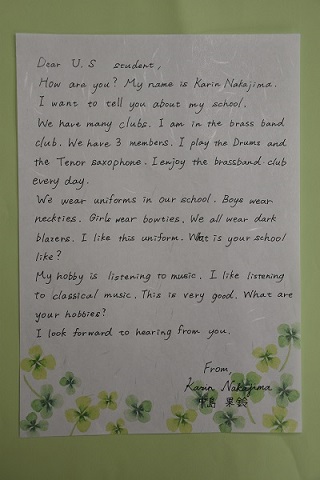 Dear U.S student,
How are you? My name is Karin Nakajima.
I want to tell you about my school.
We have many clubs. I am in the brass band
club. We have 3 members. I play the Drums and
the Tenor saxophone. I enjoy the brassband club
every day.
We wear uniforms in our school. Boys wear
neckties. Girls wear bowties. We all wear dark
blazers. I like this uniform. What is your school
like?
My hobby is listening to music. I like listening
to classical music. This is very good. What are
your hobbies?
I look forward to hearing from you.
From,
Karin Nakajima
中島 果鈴